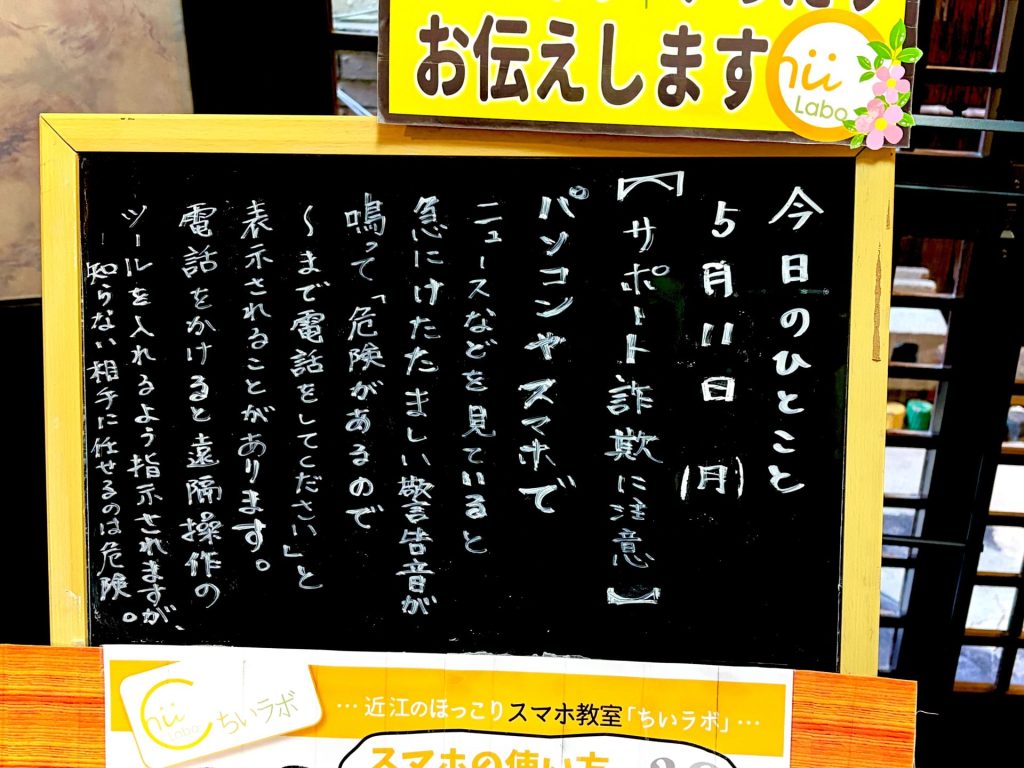 お伝えします
Chii
Labo
今日のひとこと
5月11日(月)
【サポート詐欺に注意】
パソコンやスマホで
ニュースなどを見ていると
急にけたたましい警告音が
鳴って「危険があるので
〜まで電話をしてください」と
表示されることがあります。
電話をかけると遠隔操作の
ツールを入れるよう指示されますが、
知らない相手に任せるのは危険。
Chii
Labo
ちいラボ
…近江のほっこりスマホ教室「ちいラボ」…
スマホの使い方